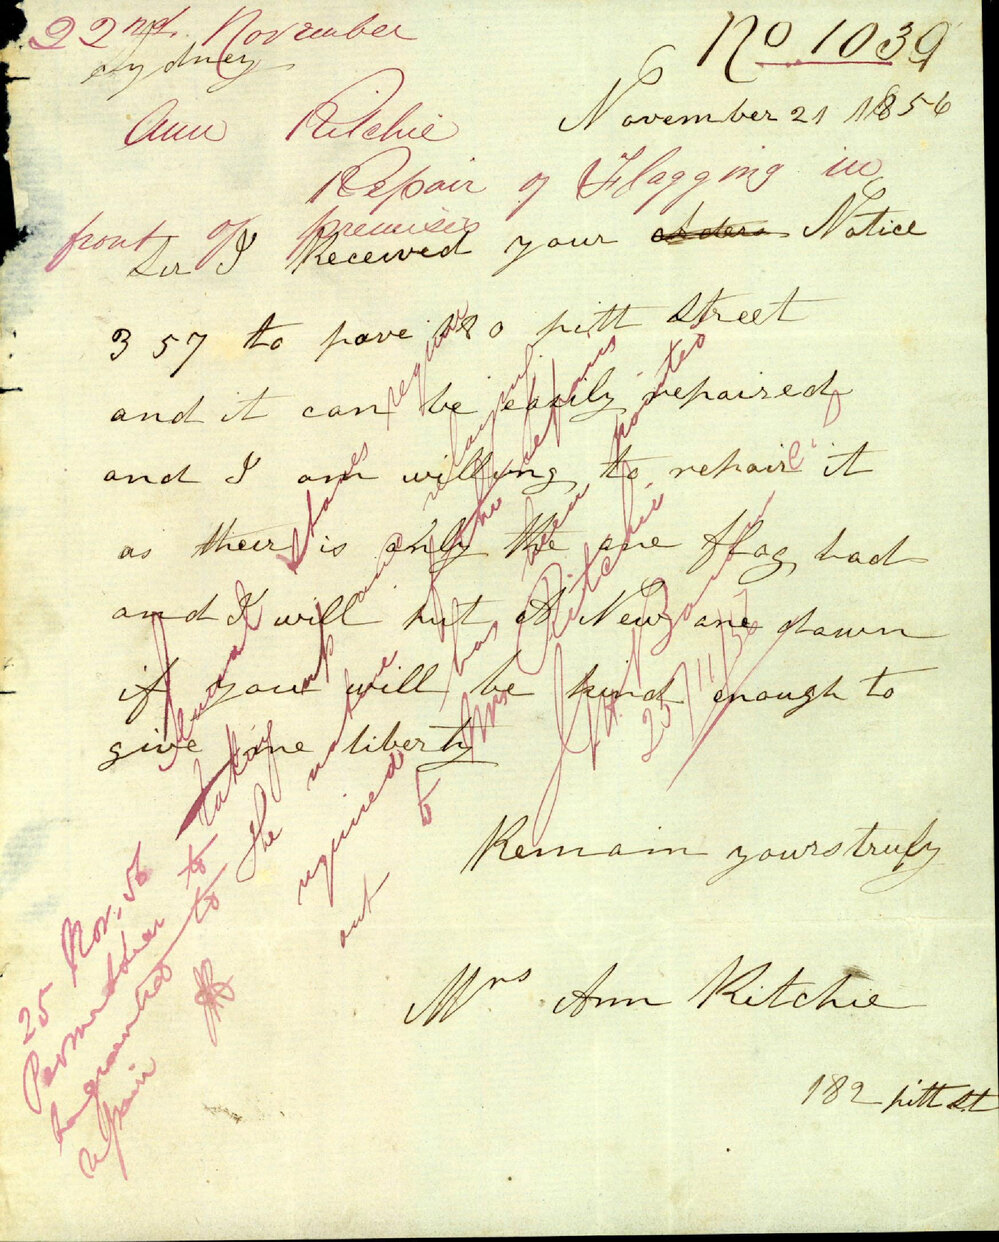 22nd. November
Sydney
No 1039
November 21 1856
Ann Ritchie
Repair of Flagging in
front of premises
Sir I Received your Notice
357 to pave 180 pitt street
and it can be easily repaired
and I am willing to repair it
as their is only the one flag bad
and I will put A New one down
if you will be kind enough to
give me liberty
Remain yours truly
Mrs Ann Ritchie
182 pitt st
Several stones require
taking up and relaying
the nature of the repairs
required has been pointed
out to Mrs Ritchie
25/11/56
25 Nov. 56
Permission to
be granted to
repair